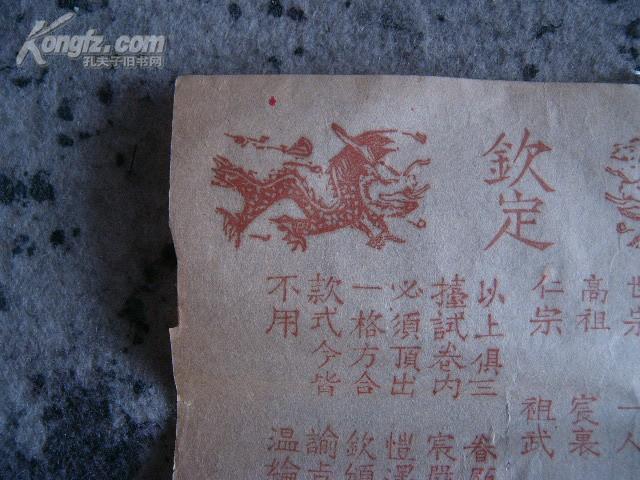 Kongfz.com
孔夫子旧书网
欽定
世宗
高祖
仁宗
以上俱三
擡試卷内
必須頂出
一格方合
款式今皆
不用
一人
宸衷
祖武
眷
宸
愷澤
欽
諭旨
温綸